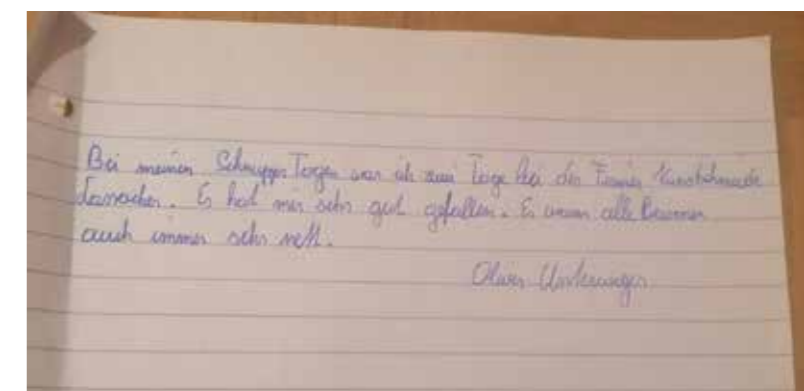 Bei meinen Schnupper Tagen war ich zwei Tage bei der Firma Kunstschmiede
Lassacher. Es hat mir sehr gut gefallen. Es waren alle
auch immer sehr nett.
Oliver Unterweger